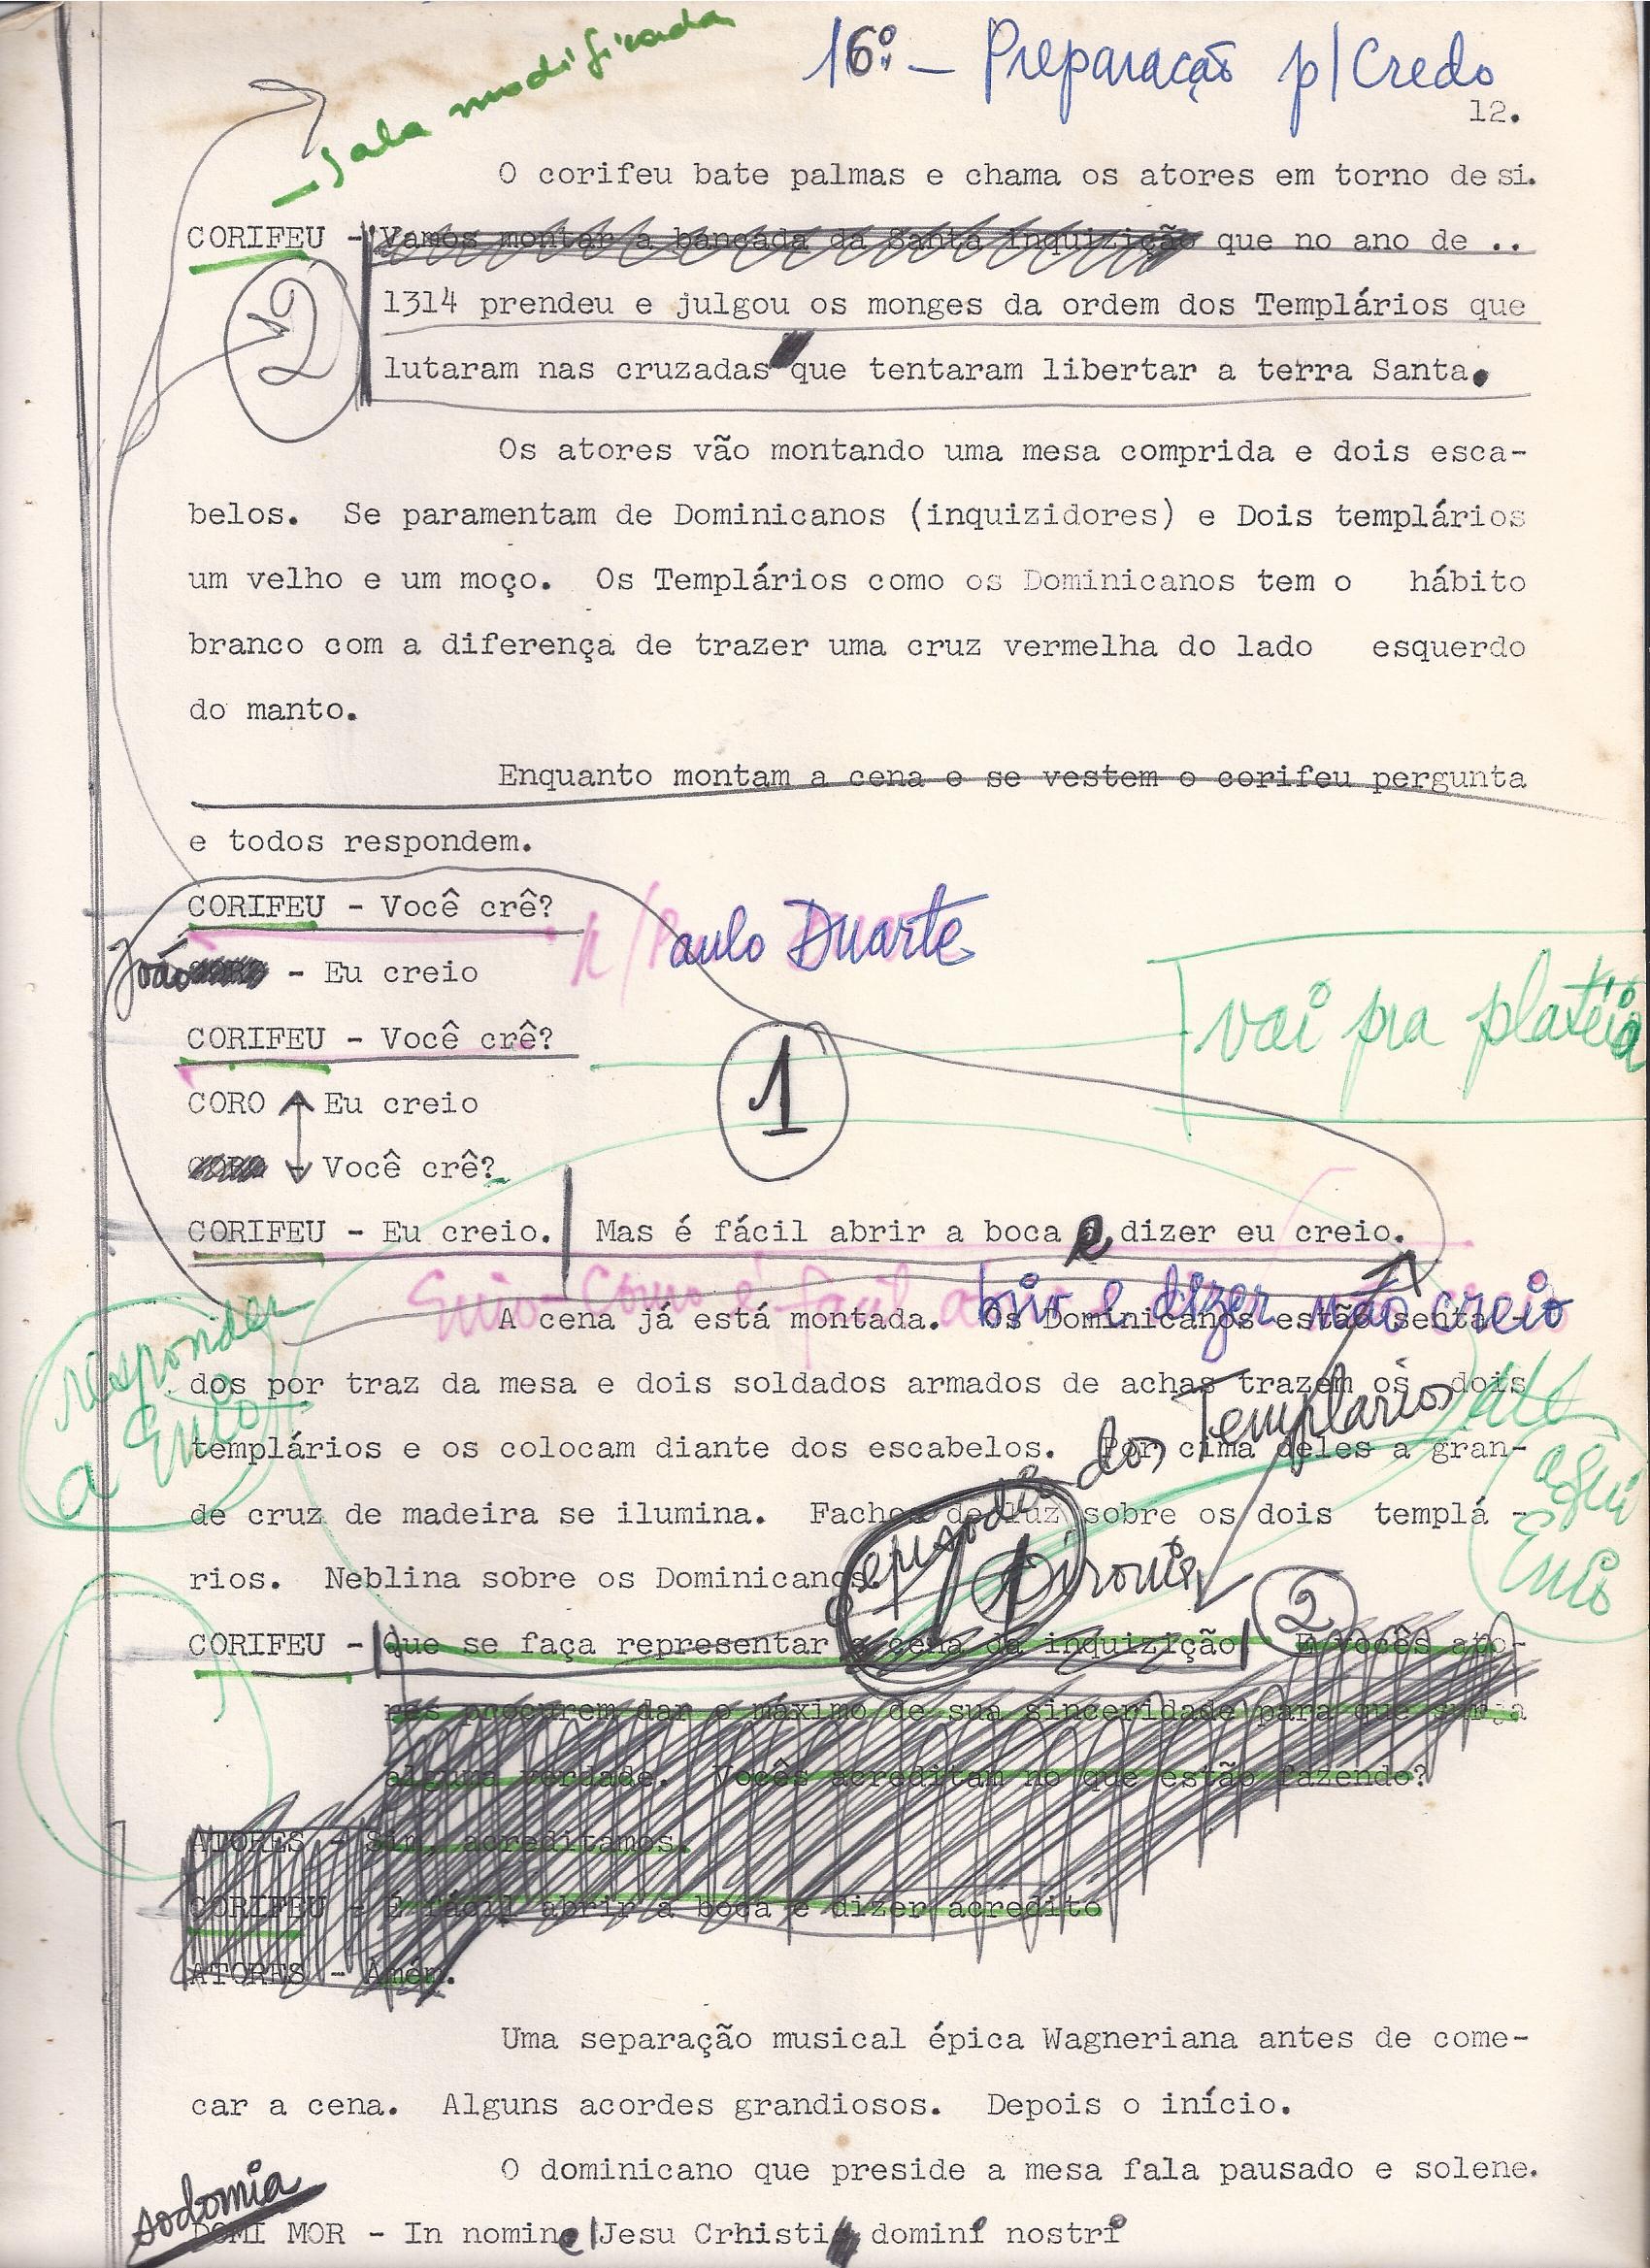 16º — Preparação p/ Credo
fala modificada
12.
O corifeu bate palmas e chama os atores em torno de si.
CORIFEU - Vamos montar a bancada da Santa Inquizição que no ano de ..
2
1314 prendeu e julgou os monges da ordem dos Templários que
lutaram nas cruzadas que tentaram libertar a terra Santa.
Os atores vão montando uma mesa comprida e dois esca-
belos. Se paramentam de Dominicanos (inquizidores) e Dois templários
um velho e um moço. Os Templários como os Dominicanos tem o hábito
branco com a diferença de trazer uma cruz vermelha do lado esquerdo
do manto.
Enquanto montam a cena e se vestem o corifeu pergunta
e todos respondem.
CORIFEU - Você crê?
p/Paulo Duarte
João CORO - Eu creio
vai pra platéia
CORIFEU - Você crê?
1
CORO - Eu creio
CORO - Você crê?
CORIFEU - Eu creio. Mas é fácil abrir a boca e dizer eu creio.
Enio - Como é fácil abrir e dizer não creio
A cena já está montada. Os Dominicanos estão senta -
responder a Enio
dos por traz da mesa e dois soldados armados de achas trazem os dois
até aqui Enio
templários e os colocam diante dos escabelos. Por cima deles a gran-
o episodio dos Templarios
de cruz de madeira se ilumina. Fachos de luz sobre os dois templá -
rios. Neblina sobre os Dominicanos.
2
CORIFEU - Que se faça representar a cena da inquizição E vocês ato-
res procurem dar o máximo de sua sinceridade para que surja
alguma verdade. Vocês acreditam no que estão fazendo?
ATORES - Sim, acreditamos.
CORIFEU - É fácil abrir a boca e dizer acredito
ATORES - Amém.
Uma separação musical épica Wagneriana antes de come-
car a cena. Alguns acordes grandiosos. Depois o início.
O dominicano que preside a mesa fala pausado e solene.
sodomia
DOMI MOR - In nomine Jesu Crhisti domini nostri